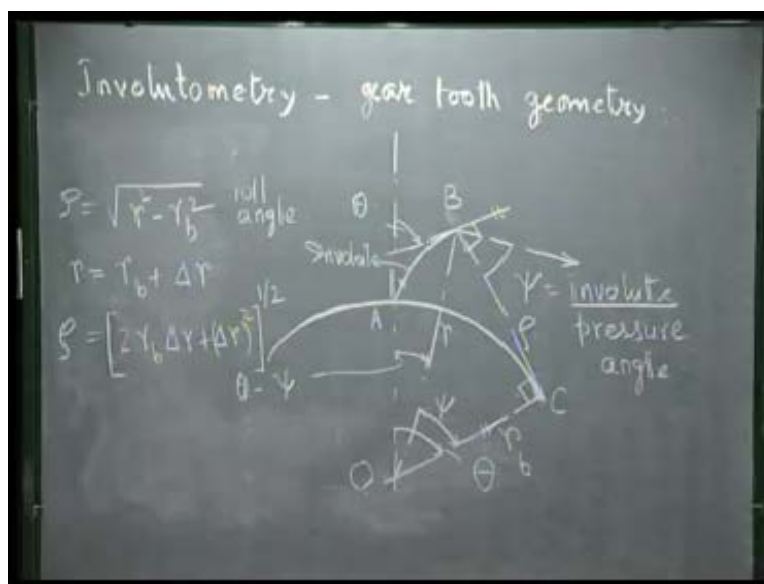 Involutometry - gear tooth geometry.
ρ = √r² - r_b² roll angle
r = r_b + Δr
ρ = [2r_b Δr + (Δr)²]^1/2
θ
B
Involute
A
r
ρ
ψ = involute / pressure angle
θ - ψ
ψ
C
r_b
O
θ